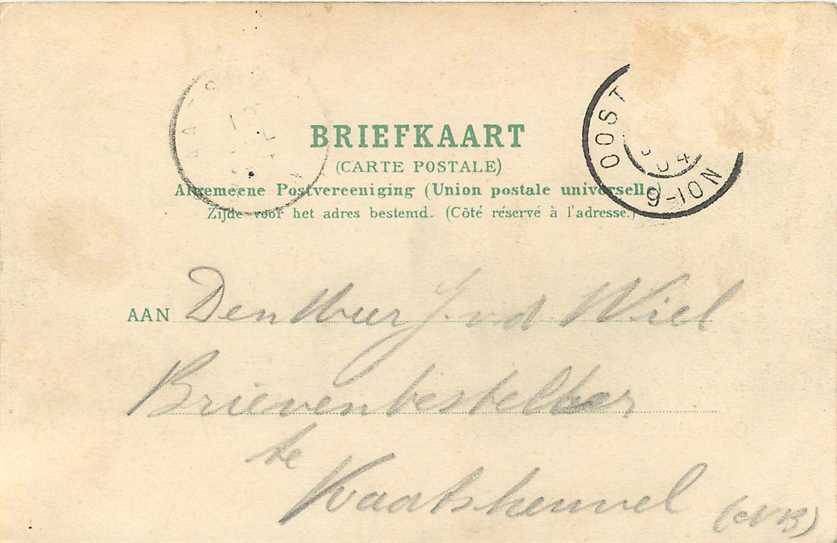 KAATS
BRIEFKAART
(CARTE POSTALE)
Algemeene Postvereeniging (Union postale universelle)
Zijde voor het adres bestemd. (Côté réservé à l'adresse.)
OOST
04
9-10N
AAN Den Heer J. v. d. Wiel
Brievenbesteller
te
Kaatsheuvel (NB)